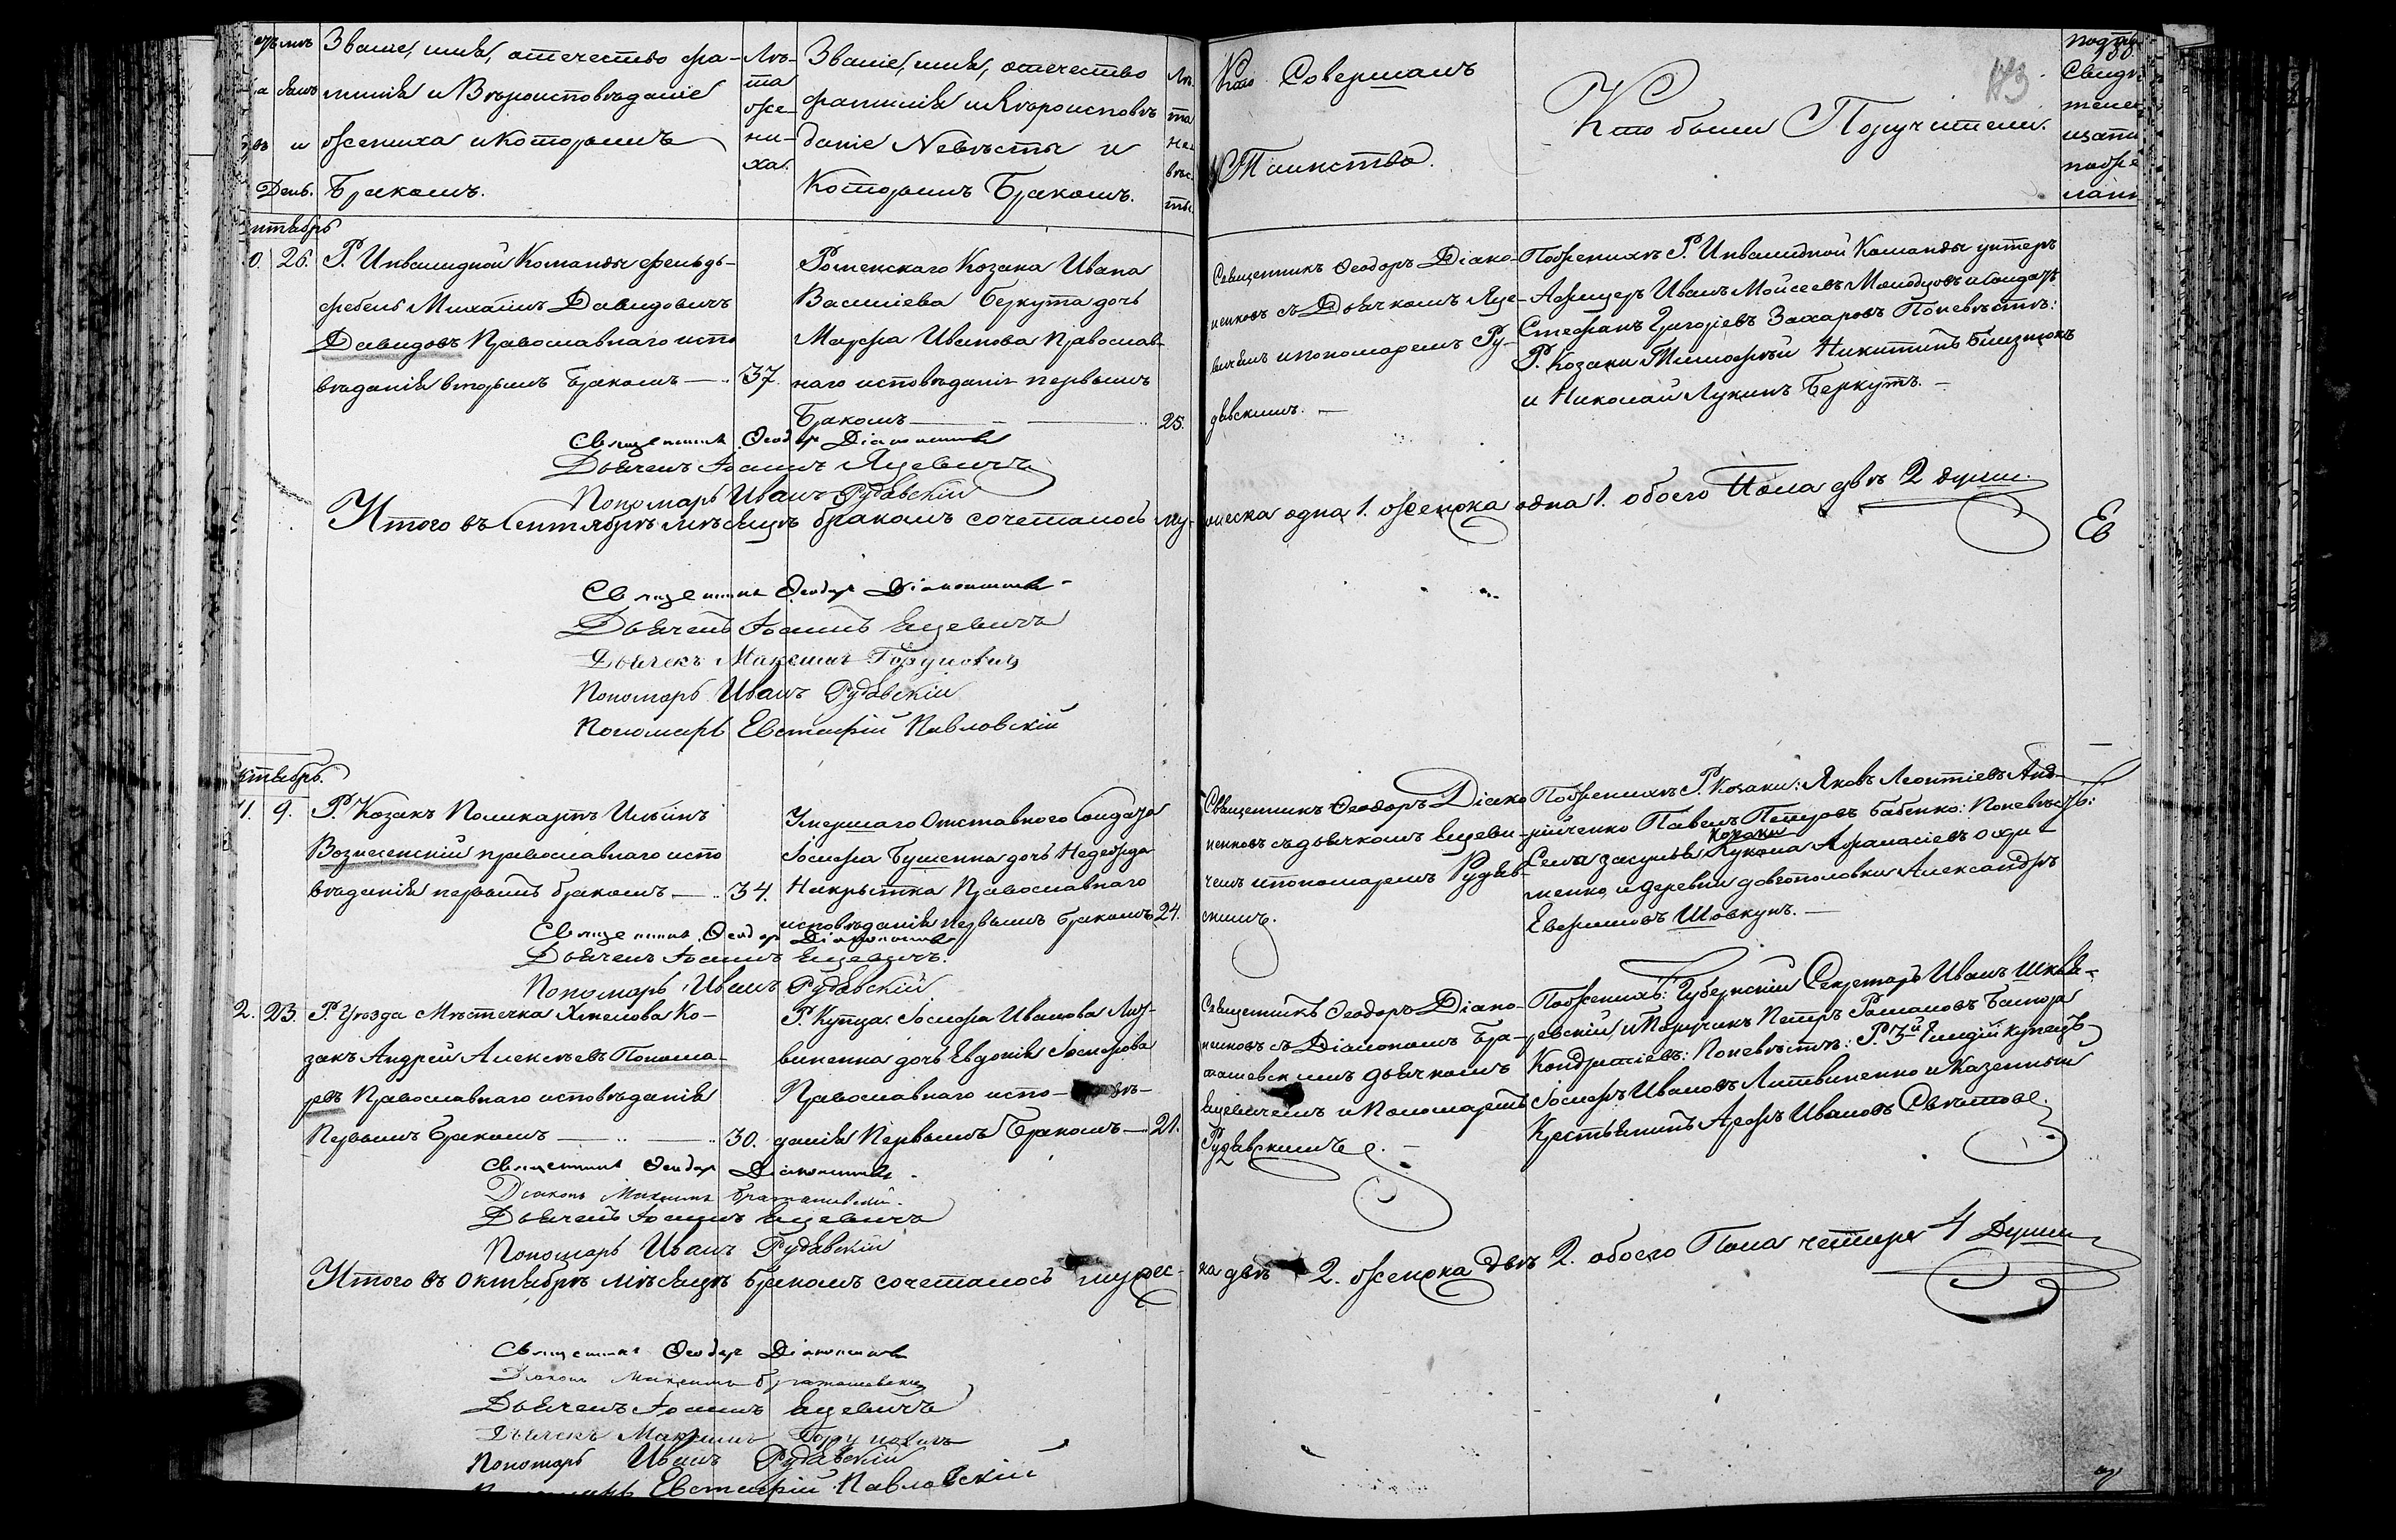 Званіе, имя, отечество фа-
милія и Вѣроисповѣданіе
жениха и которымъ
Бракомъ.
Лѣ-
та
же-
ни-
ха.
Званіе, имя, отечество
фамилія и вѣроисповѣ
даніе Невѣсты и
Которымъ Бракомъ.
Лѣ-
та
не-
вѣс-
ты.
День.
Кто Совершалъ
Таинство.
Кто были Поручители.
26. Р. Инвалидной Команды фельдъ-
фебель Михаилъ Давидовичъ
Давидовъ Православнаго испо
вѣданія вторымъ Бракомъ — 37.
Роменскаго Козака Ивана
Василіева Беркута дочь
Марфа Иванова Православ-
наго исповѣданія первымъ
Бракомъ — 25.
Священникъ Ѳеодоръ Діако-
ненковъ съ Дьячкомъ Яце-
вичемъ и пономаремъ Ру-
давскимъ. —
По женихѣ Р. Инвалидной Команды унтеръ
Афицеръ Иванъ Мойсеевъ и Солдатъ
Стефанъ Григоріевъ Захаровъ По невѣстѣ:
Р. Козаки Тимофей Никитинъ Близнюкъ
и Николай Лукинъ Беркутъ. —
Священникъ Ѳеодоръ Діаконенковъ
Дьячекъ Іоаннъ Яцевичъ
Пономарь Иванъ Рудавскій
Итого въ Сентябрѣ мѣсяцѣ бракомъ сочеталось му-
жеска одна 1. женска одна 1. обоего Пола двѣ 2 души.
Священникъ Ѳеодоръ Діаконенковъ
Дьячекъ Іоаннъ Яцевичъ
Дьячекъ Максимъ
Пономарь Иванъ Рудавскій
Пономарь Евстафій Павловскій
9. Р. Козакъ Поликарпъ Ильинъ
Вознесенскій православнаго испо
вѣданія первымъ бракомъ — 34.
Умершаго Отставного Солдата
Іосифа дочь
Православнаго
исповѣданія первымъ бракомъ 24.
Священникъ Ѳеодоръ Діако
ненковъ съ дьячкомъ Яцеви-
чемъ и пономаремъ Рудав-
скимъ.
По женихѣ Р. Козаки: Яковъ Леонтіевъ Анд-
рійченко Павелъ Петровъ Бабенко: По невѣстѣ:
козаки
Села Засулья Афанасіевъ
и деревни Довгополовки Александръ
Евфимовъ Шовкунъ. —
Священникъ Ѳеодоръ Діаконенковъ
Дьячекъ Іоаннъ Яцевичъ.
Пономарь Иванъ Рудавскій
2. 23. Р. Уѣзда Мѣстечка Хмелова Ко-
закъ Андрей Алексѣевъ Понома-
ревъ Православнаго исповѣданія
Первымъ Бракомъ — 30.
Р. Купца Іосифа Иванова Лит-
виненка дочь Евдокія Іосифова
Православнаго испо- вѣ-
данія Первымъ Бракомъ — 21.
Священникъ Ѳеодоръ Діако-
ненковъ съ Діакономъ Бра-
ташевскимъ дьячкомъ
Яцевичемъ и Пономаремъ
Рудавскимъ. —
По женихѣ: Губернскій Секретарь Иванъ Шкля-
ревскій, и Поручикъ Петръ Романовъ
Кондратіевъ: По невѣстѣ: Р. 3й Гилдіи купецъ
Іосифъ Ивановъ Литвиненко и Казенный
Крестьянинъ Иванов
Священникъ Ѳеодоръ Діаконенковъ
Діаконъ Максимъ Браташевскій.
Дьячекъ Іоаннъ Яцевичъ
Пономарь Иванъ Рудавскій
Итого въ Октябрѣ мѣсяцѣ бракомъ сочеталось мужес-
ка двѣ 2. женска двѣ 2. обоего Пола четыре 4 Души
Священникъ Ѳеодоръ Діаконенковъ
Діаконъ Максимъ Браташевскій
Дьячекъ Іоаннъ Яцевичъ
Дьячекъ Максимъ
Пономарь Иванъ Рудавскій
Пономарь Евстафій Павловскій